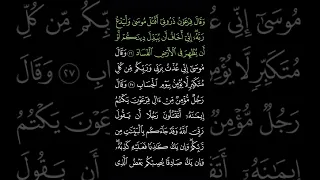 وَقَالَ فِرْعَوْنُ ذَرُونِىٓ أَقْتُلْ مُوسَىٰ وَلْيَدْعُ
رَبَّهُۥٓ إِنِّىٓ أَخَافُ أَن يُبَدِّلَ دِينَكُمْ أَوْ
أَن يُظْهِرَ فِى ٱلْأَرْضِ ٱلْفَسَادَ ٢٦ وَقَالَ
مُوسَىٰٓ إِنِّى عُذْتُ بِرَبِّى وَرَبِّكُم مِّن كُلِّ
مُتَكَبِّرٍ لَّا يُؤْمِنُ بِيَوْمِ ٱلْحِسَابِ ٢٧ وَقَالَ
رَجُلٌ مُّؤْمِنٌ مِّنْ ءَالِ فِرْعَوْنَ يَكْتُمُ
إِيمَٰنَهُۥٓ أَتَقْتُلُونَ رَجُلًا أَن يَقُولَ
رَبِّىَ ٱللَّهُ وَقَدْ جَآءَكُم بِٱلْبَيِّنَٰتِ مِن
رَّبِّكُمْ وَإِن يَكُ كَٰذِبًا فَعَلَيْهِ كَذِبُهُۥ
وَإِن يَكُ صَادِقًا يُصِبْكُم بَعْضُ ٱلَّذِى